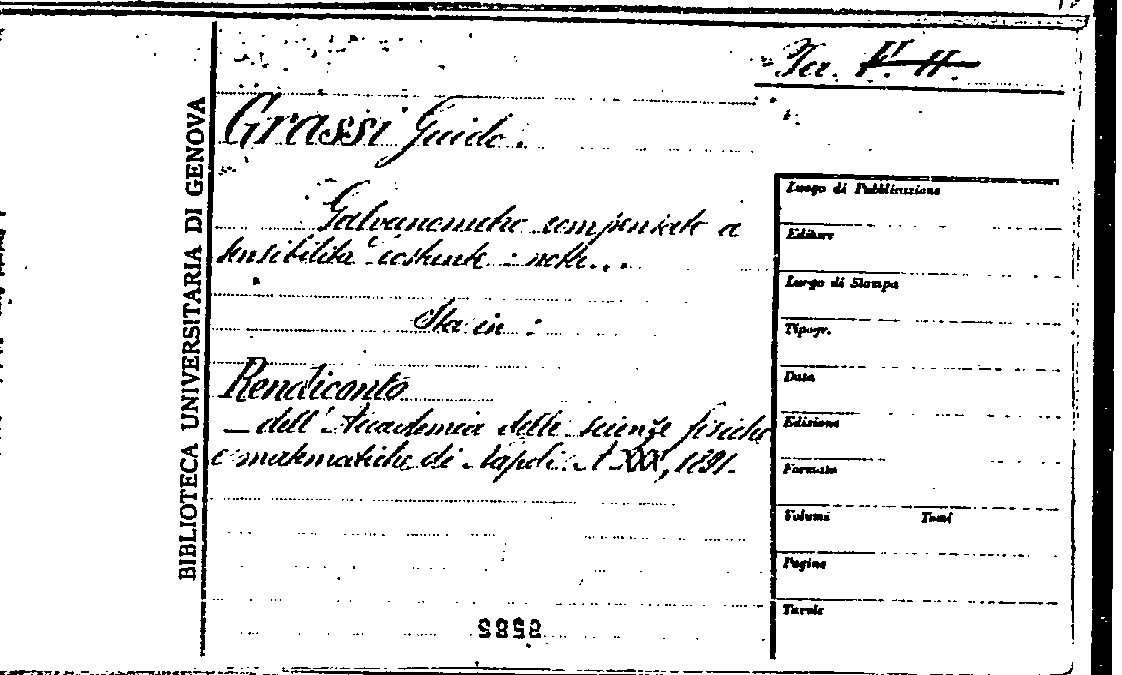 BIBLIOTECA UNIVERSITARIA DI GENOVA
Ter. F. H.
Grassi Guido.
Galvanometro compensato a
sensibilità costante : nota...
Sta in :
Rendiconto
dell'Accademia delle scienze fisiche
e matematiche di Napoli. A XXX, 1891.
8585
Luogo di Pubblicazione
Editore
Luogo di Stampa
Tipogr.
Data
Edizione
Formato
Volumi Tomi
Pagine
Tavole